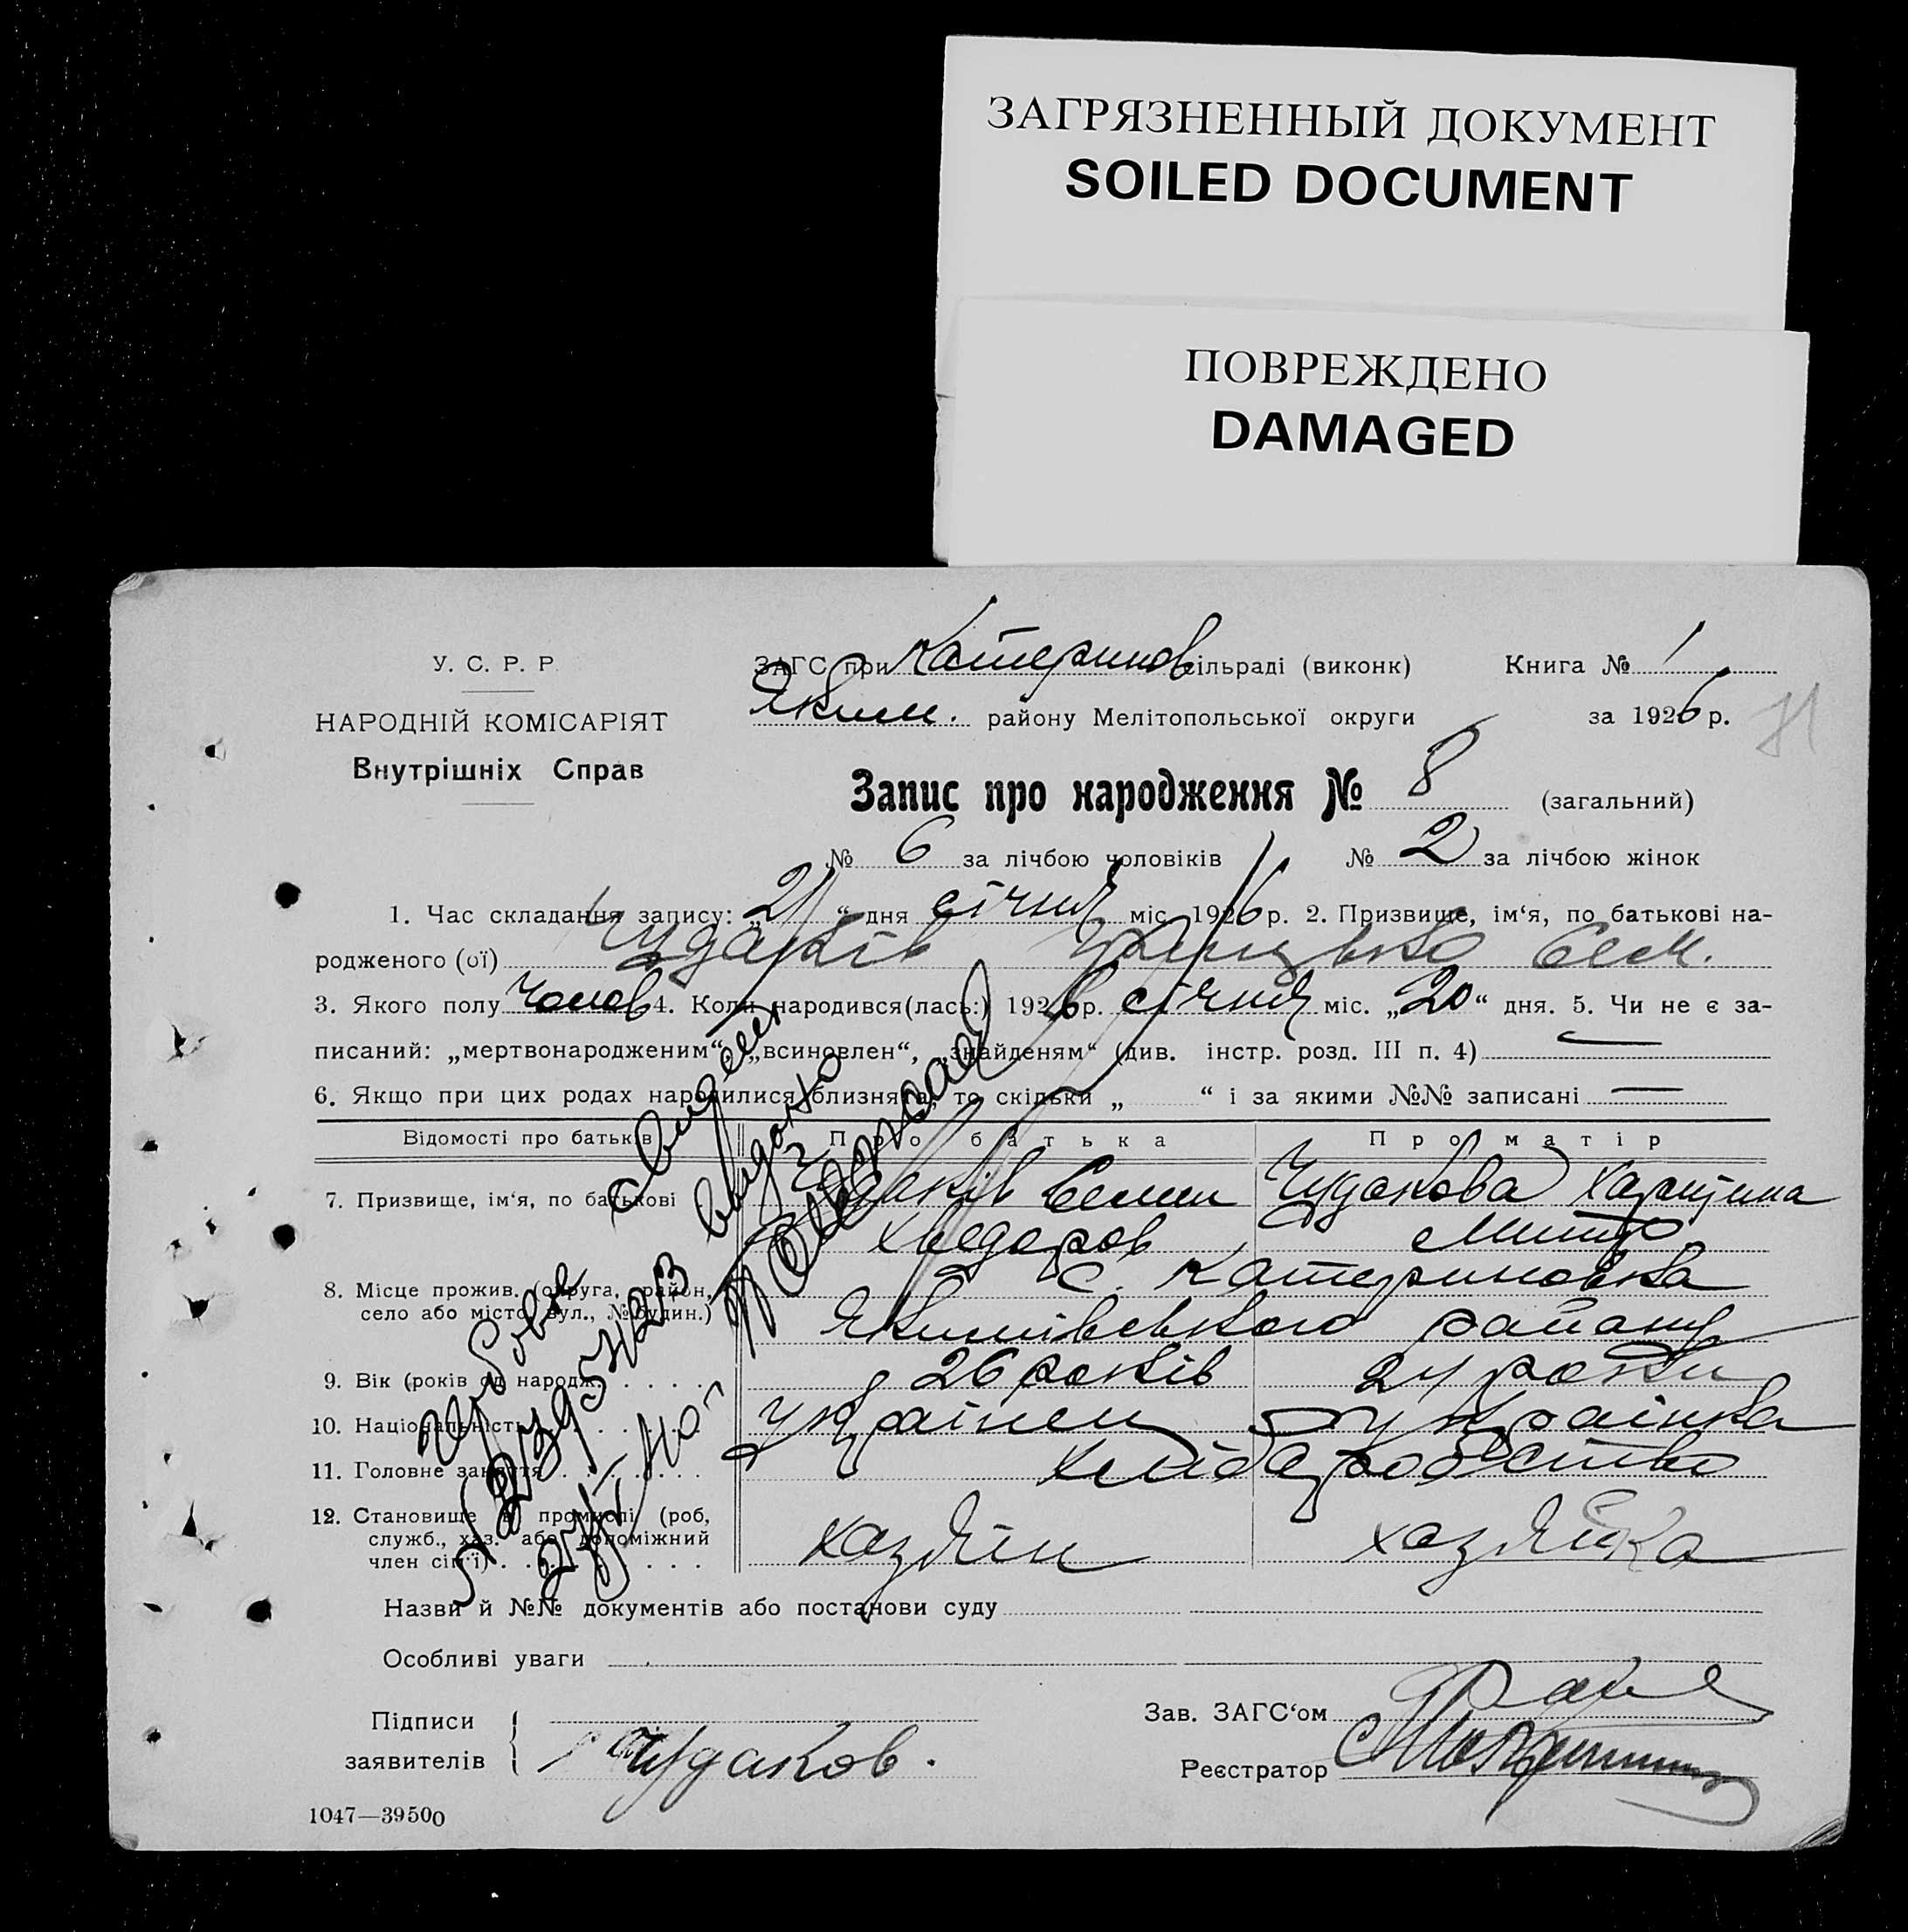 ЗАГРЯЗНЕННЫЙ ДОКУМЕНТ
SOILED DOCUMENT
ПОВРЕЖДЕНО
DAMAGED
У. С. Р. Р.
НАРОДНІЙ КОМІСАРІЯТ
Внутрішніх Справ
ЗАГС при Катеринов сільраді (виконк) Книга № 1
Яким. району Мелітопольської округи за 1926 р.
71
Запис про народження № 8 (загальний)
№ 6 за лічбою чоловіків № 2 за лічбою жінок
1. Час складання запису: „21“ дня січня міс. 1926 р. 2. Призвище, ім‘я, по батькові на-
родженого (ої) Чудаків Сем.
3. Якого полу чолов 4. Коли народився(лась:) 1926 р. січня міс. „20“ дня. 5. Чи не є за-
писаний: „мертвонародженим“, „всиновлен“, „знайденям“ (див. інстр. розд. III п. 4) —
6. Якщо при цих родах народилися близнята, то скільки „ “ і за якими №№ записані —
Відомості про батьків Про батька Про матір
7. Призвище, ім‘я, по батькові Чудаків Семен Чудакова Харитина
Хведоров Митр.
8. Місце прожив. (округа, район, с. Катериновка
село або місто, вул., № будин.) Якимівського району
9. Вік (років од народж. . . . . . 26 років 24 роки
10. Національність . . . . . . Українец українка
11. Головне заняття . . . . . . хліборобство
12. Становище в промислі (роб,
служб., хаз. або допоміжний
член сім‘ї) . . . . . . хазяїн хазяйка
Назви й №№ документів або постанови суду
Особливі уваги
Підписи
заявителів Чудаков.
Зав. ЗАГС‘ом
Реєстратор
1047—39500